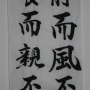 而風不
而親不